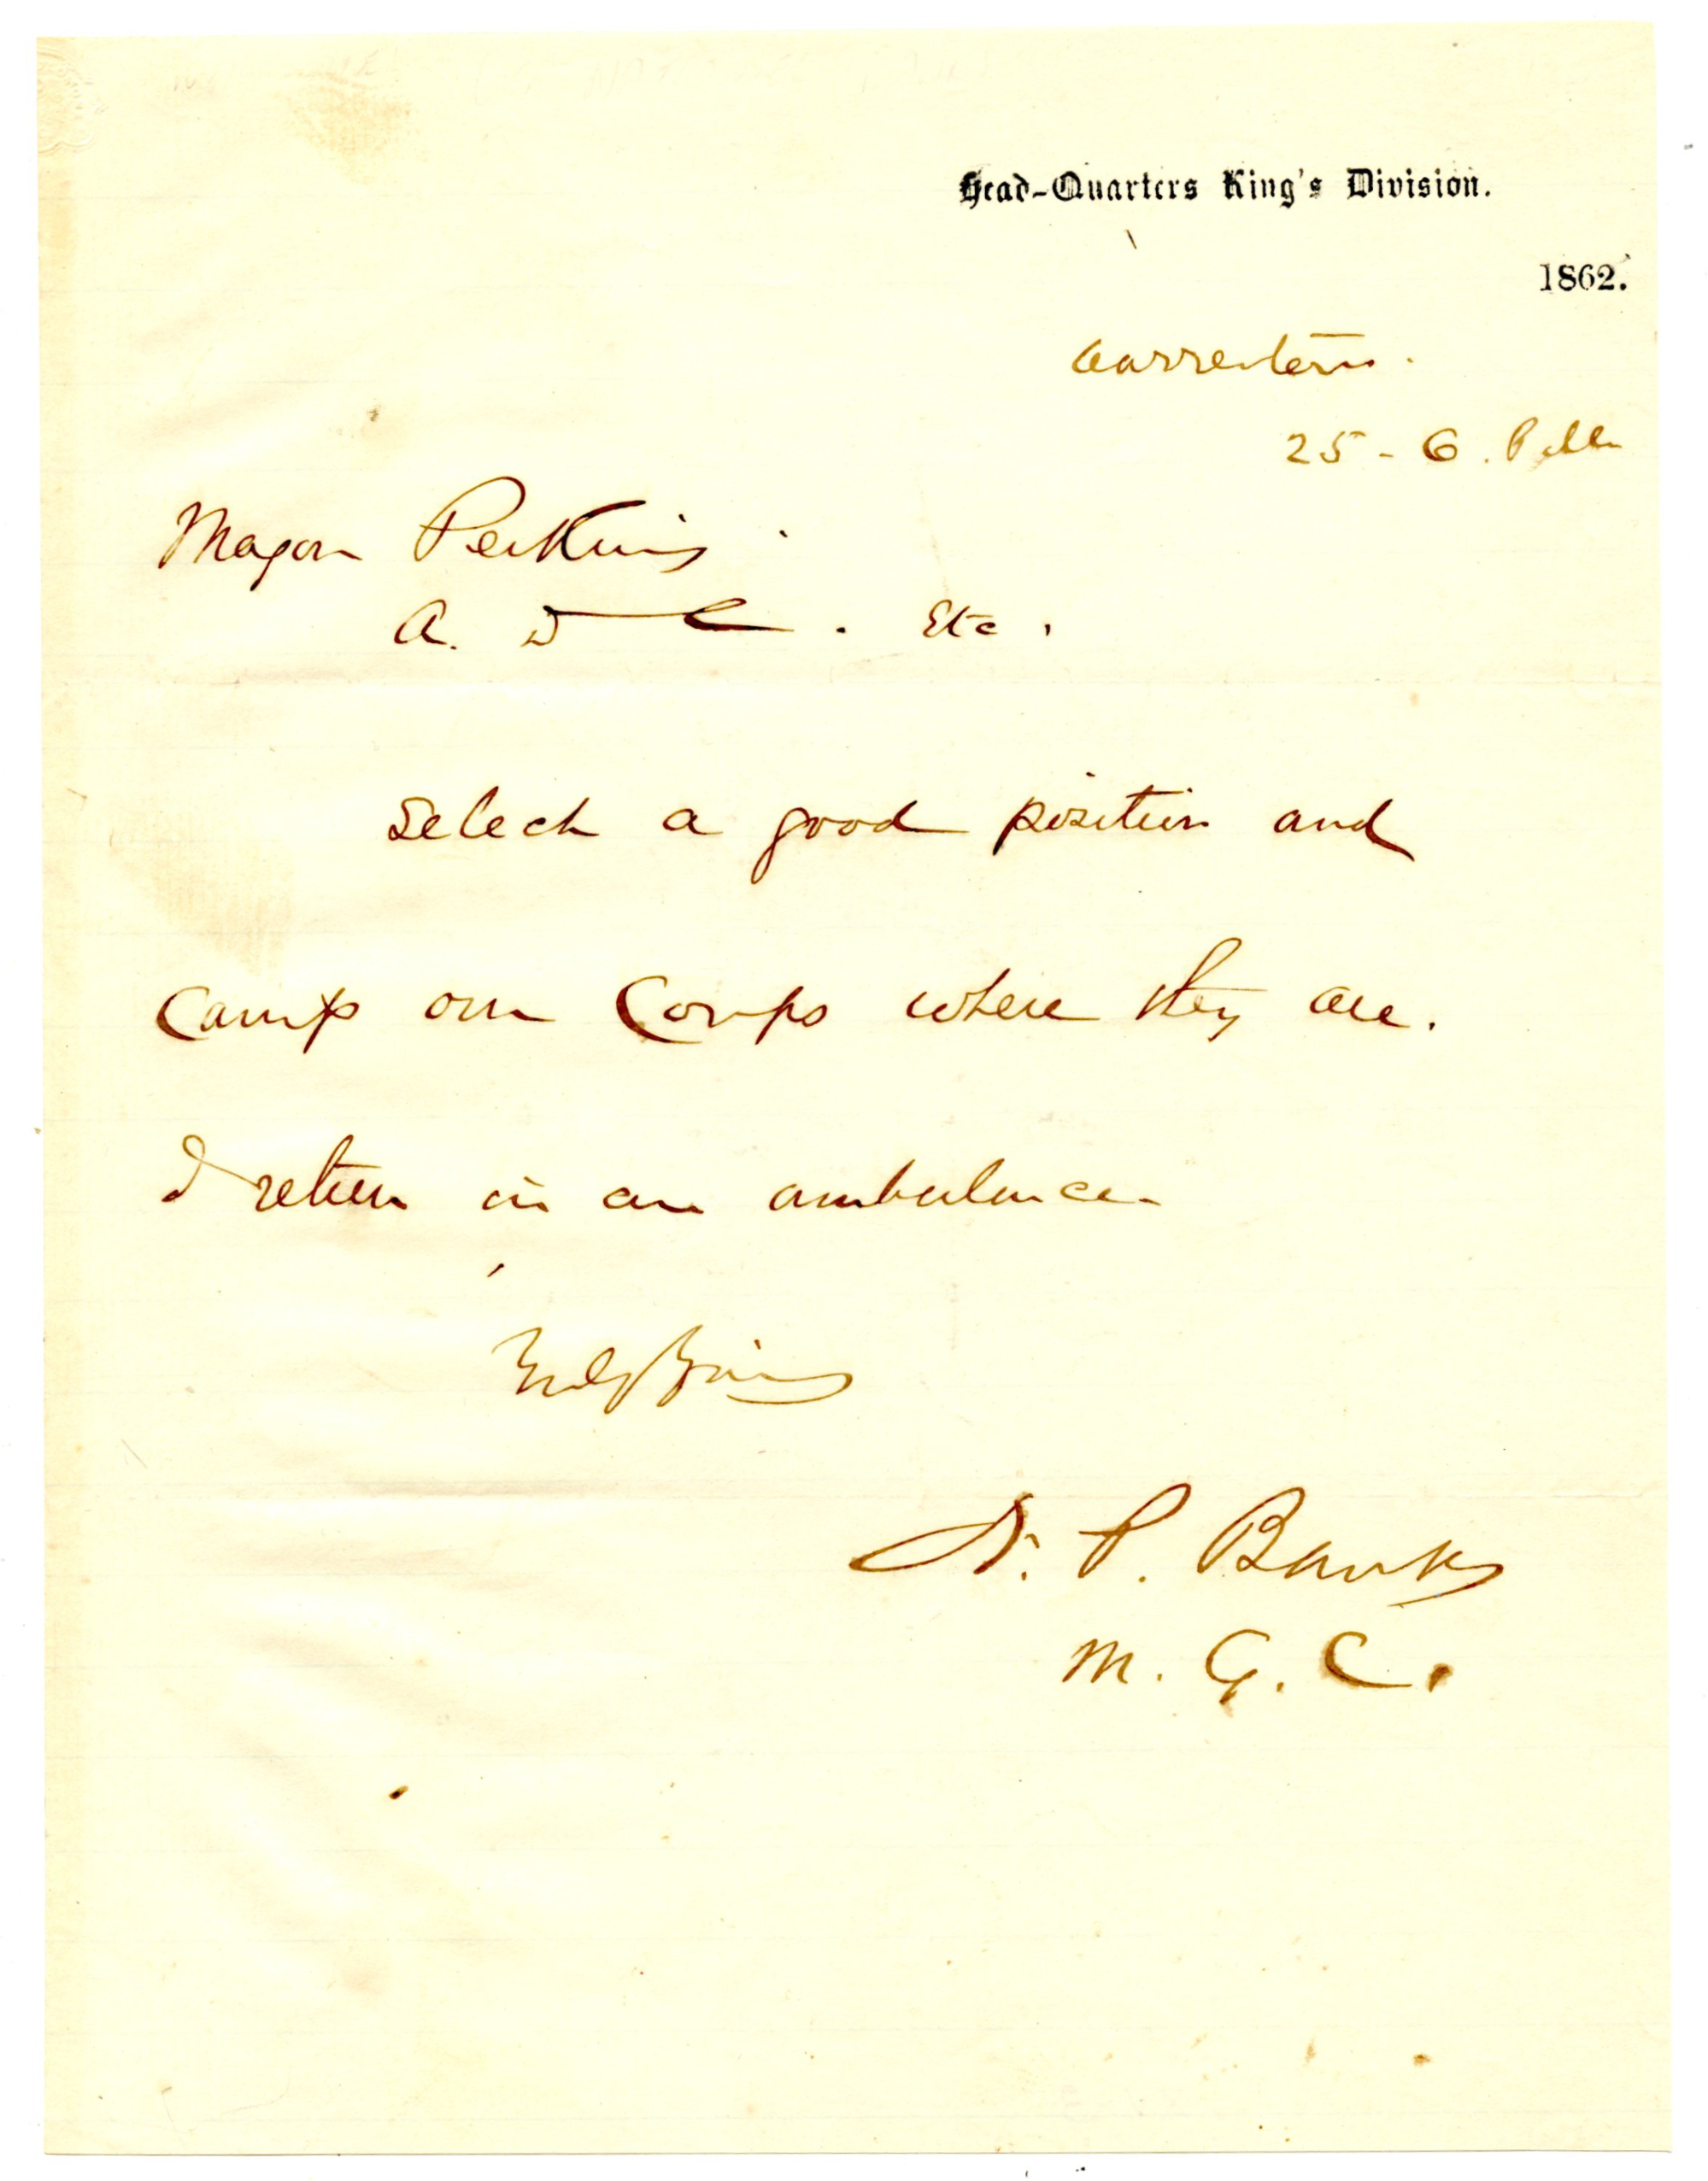 Head-Quarters King's Division.
1862.
Warrenton.
25 - 6. P.M.
Major Perkins
A. D C. Etc.
Select a good position and
Camp our Corps where they are.
I return in an ambulance
Truly Yours
N. P. Banks
M. G. C.